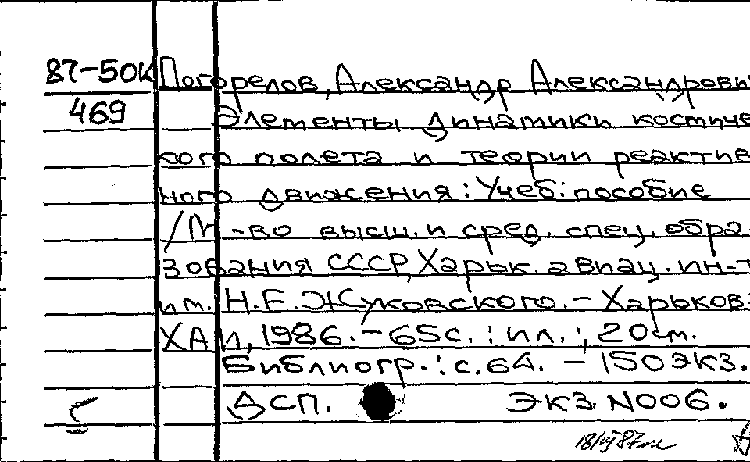 87-50К Погорелов, Александр Александрови
469 Элементы динамики костиче
кого полета и теории реактив
ного движения: Учеб. пособие
/М-во высш. и сред. спец. обра
зования СССР, Харьк. авиац. ин-т
им. Н.Е. Жуковского. – Харьков:
ХАИ, 1986. – 65с. : ил. ; 20см.
Библиогр.: с. 64. – 150 экз.
ДСП. ЭКЗ N006.